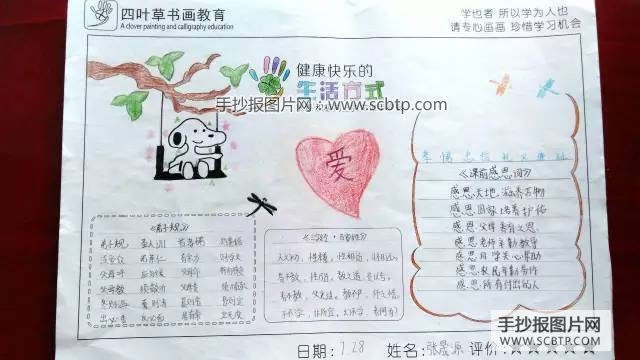 四叶草书画教育
A clover painting and calligraphy education
学也者 所以学为人也
请专心画画 珍惜学习机会
健康快乐的
生活方式
手抄报图片网·www.scbtp.com
爱
孝悌忠信礼义廉耻
《课前感恩词》
感恩天地 滋养万物
感恩国家 培养护佑
感恩父母 养育之恩
感恩老师 辛勤教导
感恩同学 关心帮助
感恩农民 辛勤劳作
感恩所有付出的人
《弟子规》
弟子规 圣人训 首孝悌 次谨信
泛爱众 而亲仁 有余力 则学文
父母呼 应勿缓 父母命 行勿懒
父母教 须敬听 父母责 须顺承
冬则温 夏则凊 晨则省 昏则定
出必告 反必面 居有常 业无变
人之初，性本善，性相近，习相远，
苟不教，性乃迁，教之道，贵以专，
子不学，非所宜，幼不学，老何为
日期：7.28 姓名：张晟源 评价：☆☆☆☆☆
手抄报图片网
WWW.SCBTP.COM